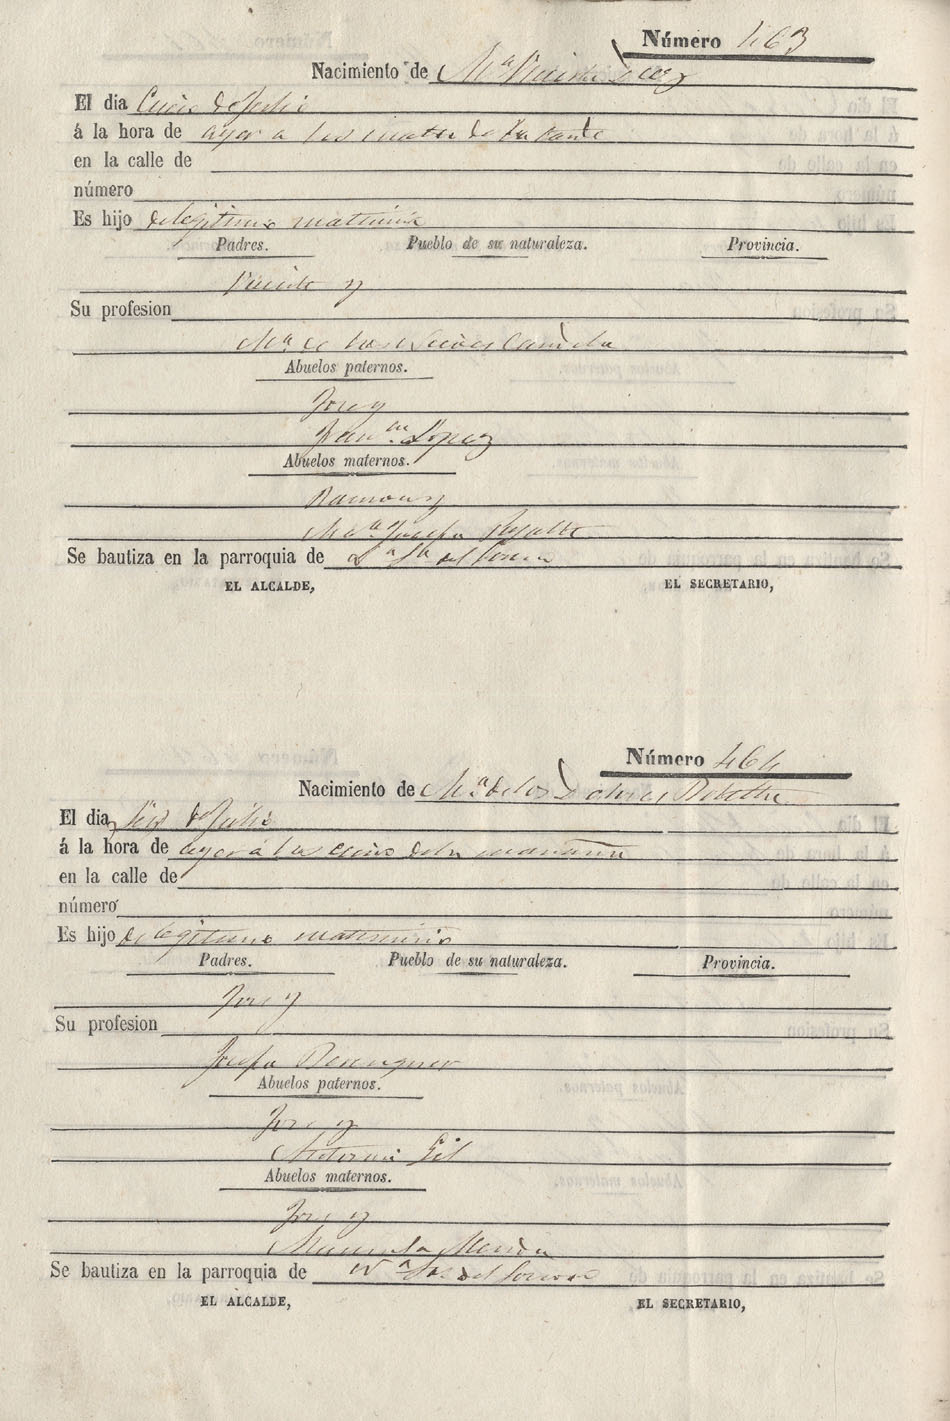 Número 463
Nacimiento de Mª
El dia Cinco de Julio
á la hora de ayer a las cuatro de la tarde
en la calle de
número
Es hijo de legitimo matrimº
Padres. Pueblo de su naturaleza. Provincia.
Vicente y
Su profesion
Mª de los
Abuelos paternos.
Jose y
Franca. López
Abuelos maternos.
Ramon y
Mª Josefa
Se bautiza en la parroquia de
EL ALCALDE, EL SECRETARIO,
Número 464
Nacimiento de Mª de los Dolores
El dia Seis de Julio
á la hora de ayer á las cinco de la mañana
en la calle de
número
Es hijo de legitimo matrimonio
Padres. Pueblo de su naturaleza. Provincia.
Jose y
Su profesion
Josefa Berenguer
Abuelos paternos.
Jose y
Antonia Gil
Abuelos maternos.
Jose y
Manuela
Se bautiza en la parroquia de
EL ALCALDE, EL SECRETARIO,